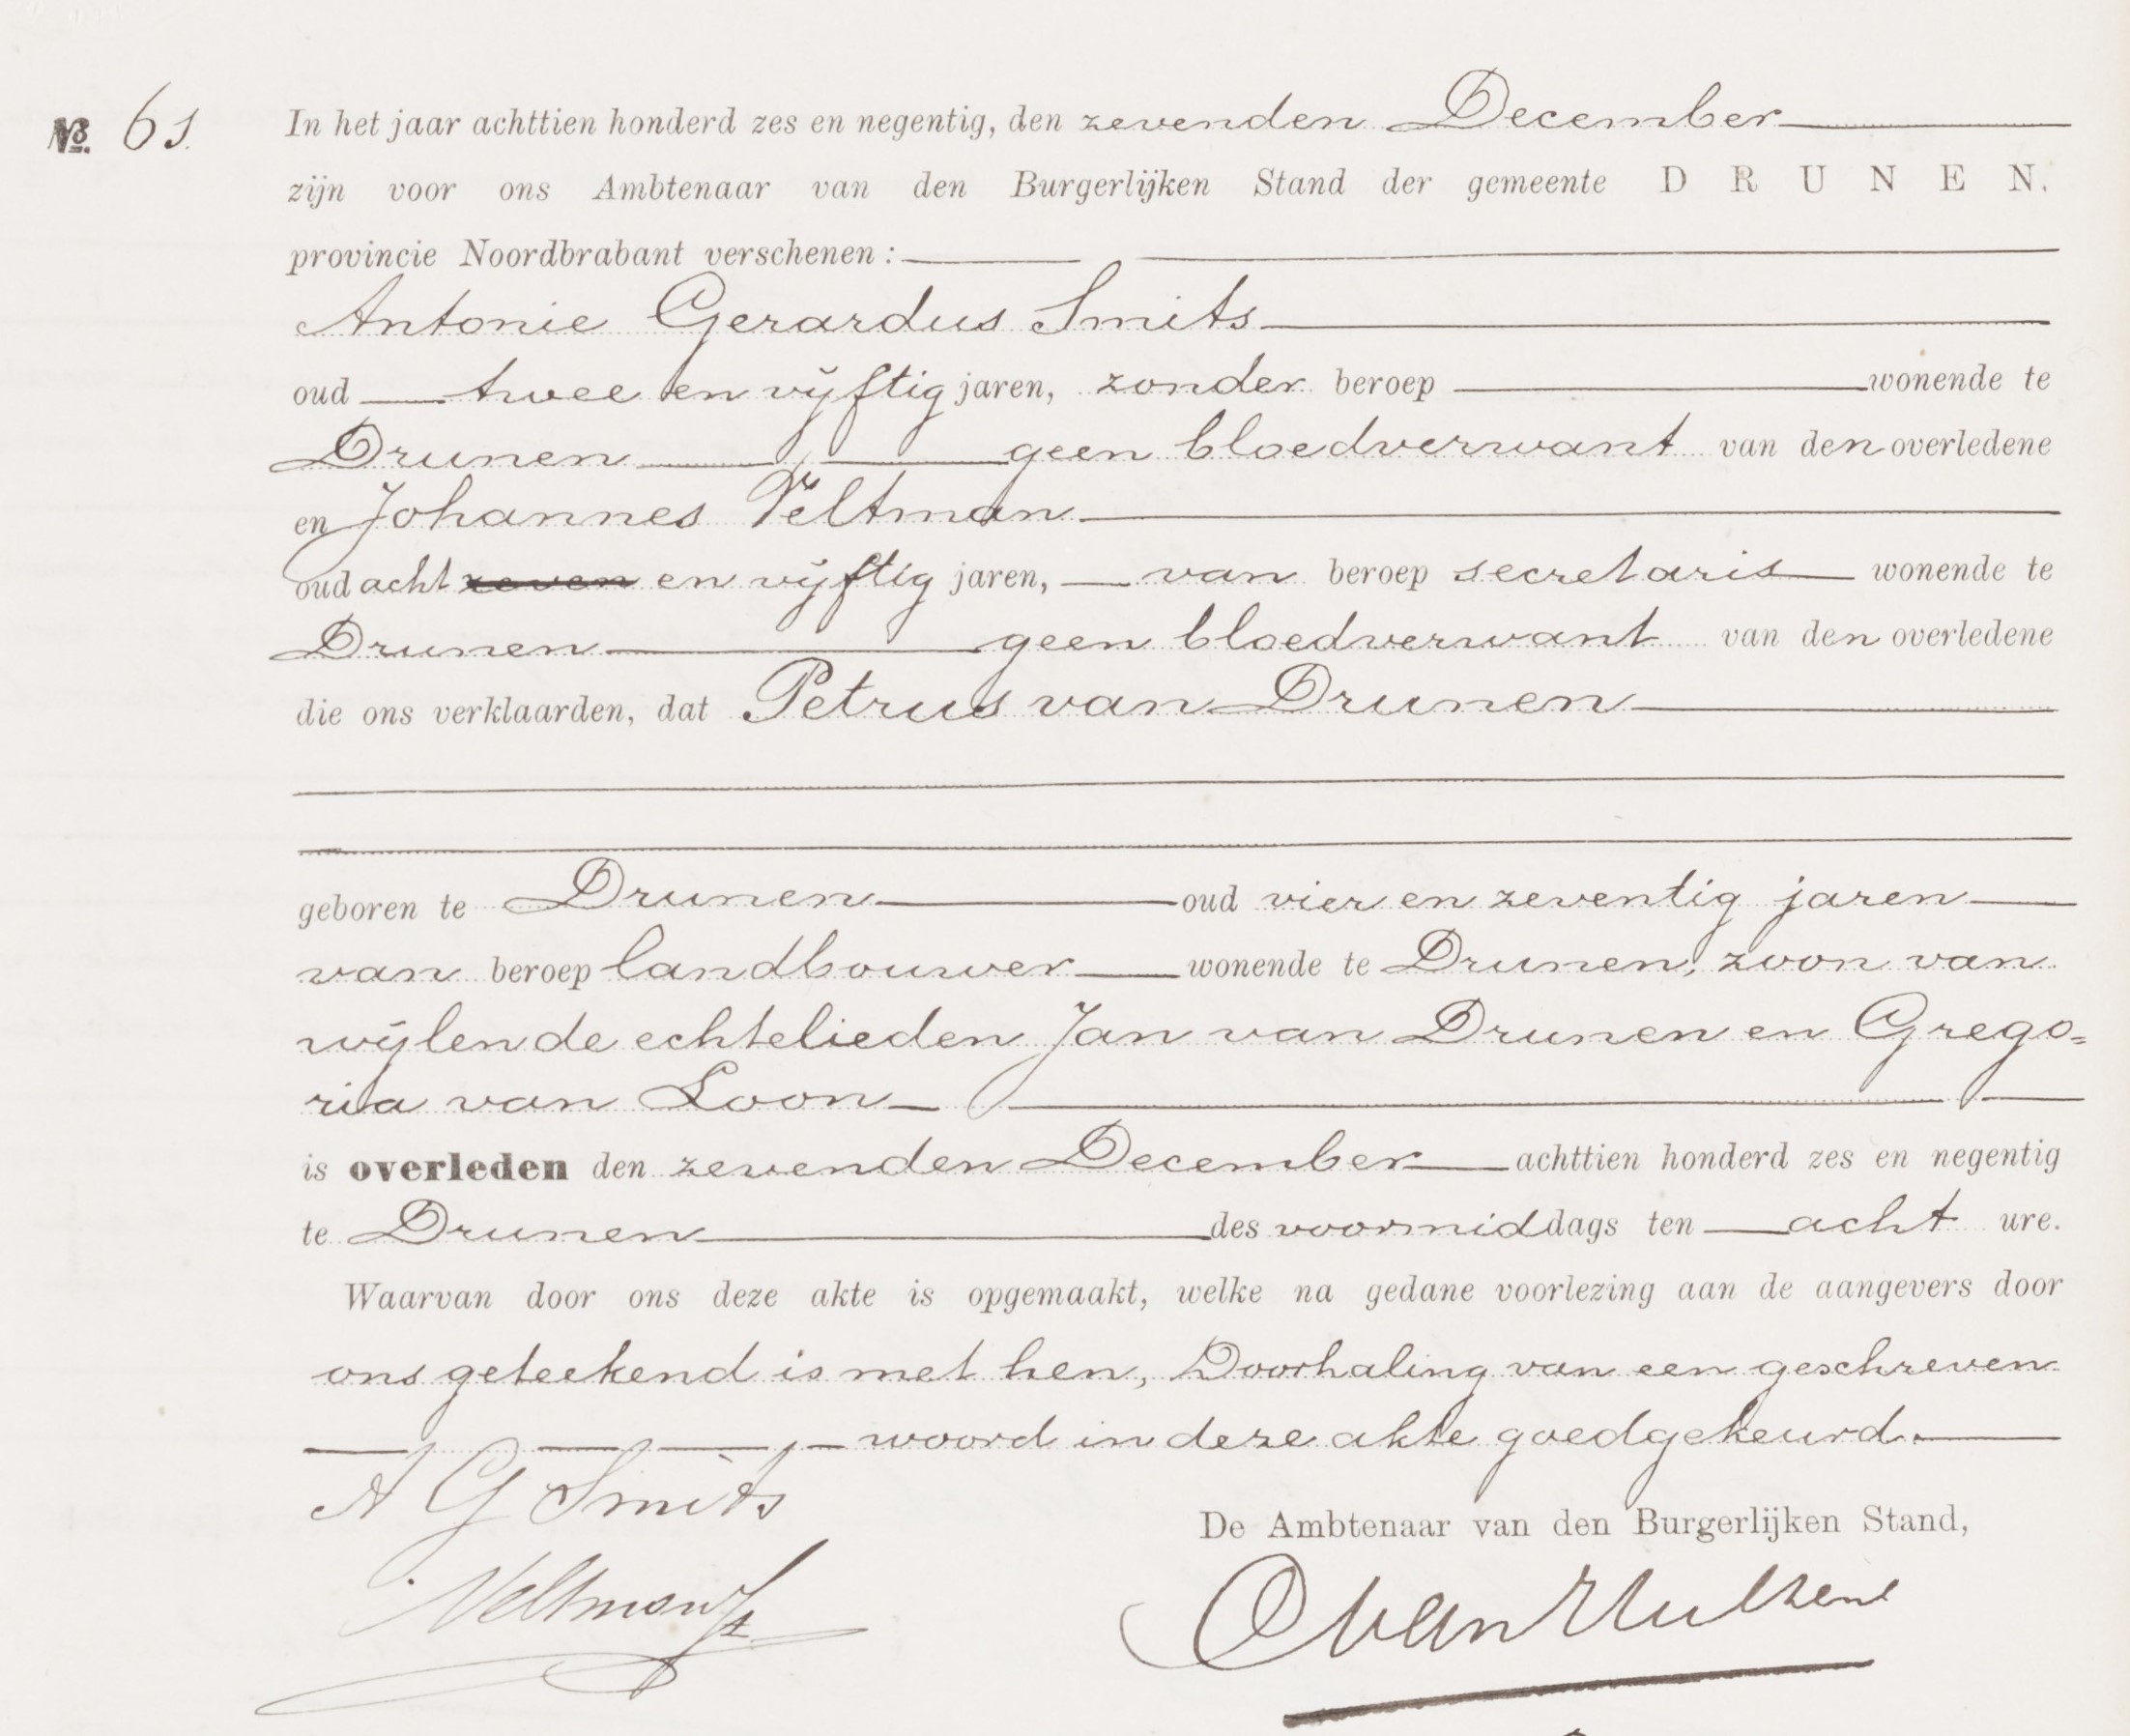 No. 61. In het jaar achttien honderd zes en negentig, den zevenden December
zijn voor ons Ambtenaar van den Burgerlijken Stand der gemeente DRUNEN.
provincie Noordbrabant verschenen:
Antonie Gerardus Smits
oud twee en vijftig jaren, zonder beroep wonende te
Drunen geen bloedverwant van den overledene
en Johannes Veltman
oud acht zeven en vijftig jaren, van beroep secretaris wonende te
Drunen geen bloedverwant van den overledene
die ons verklaarden, dat Petrus van Drunen
geboren te Drunen oud vier en zeventig jaren
van beroep landbouwer wonende te Drunen, zoon van
wijlen de echtelieden Jan van Drunen en Grego=
ria van Loon
is overleden den zevenden December achttien honderd zes en negentig
te Drunen des voormiddags ten acht ure.
Waarvan door ons deze akte is opgemaakt, welke na gedane voorlezing aan de aangevers door
ons geteekend is met hen, Doorhaling van een geschreven
woord in deze akte goedgekeurd.
A G Smits
De Ambtenaar van den Burgerlijken Stand,
Veltman